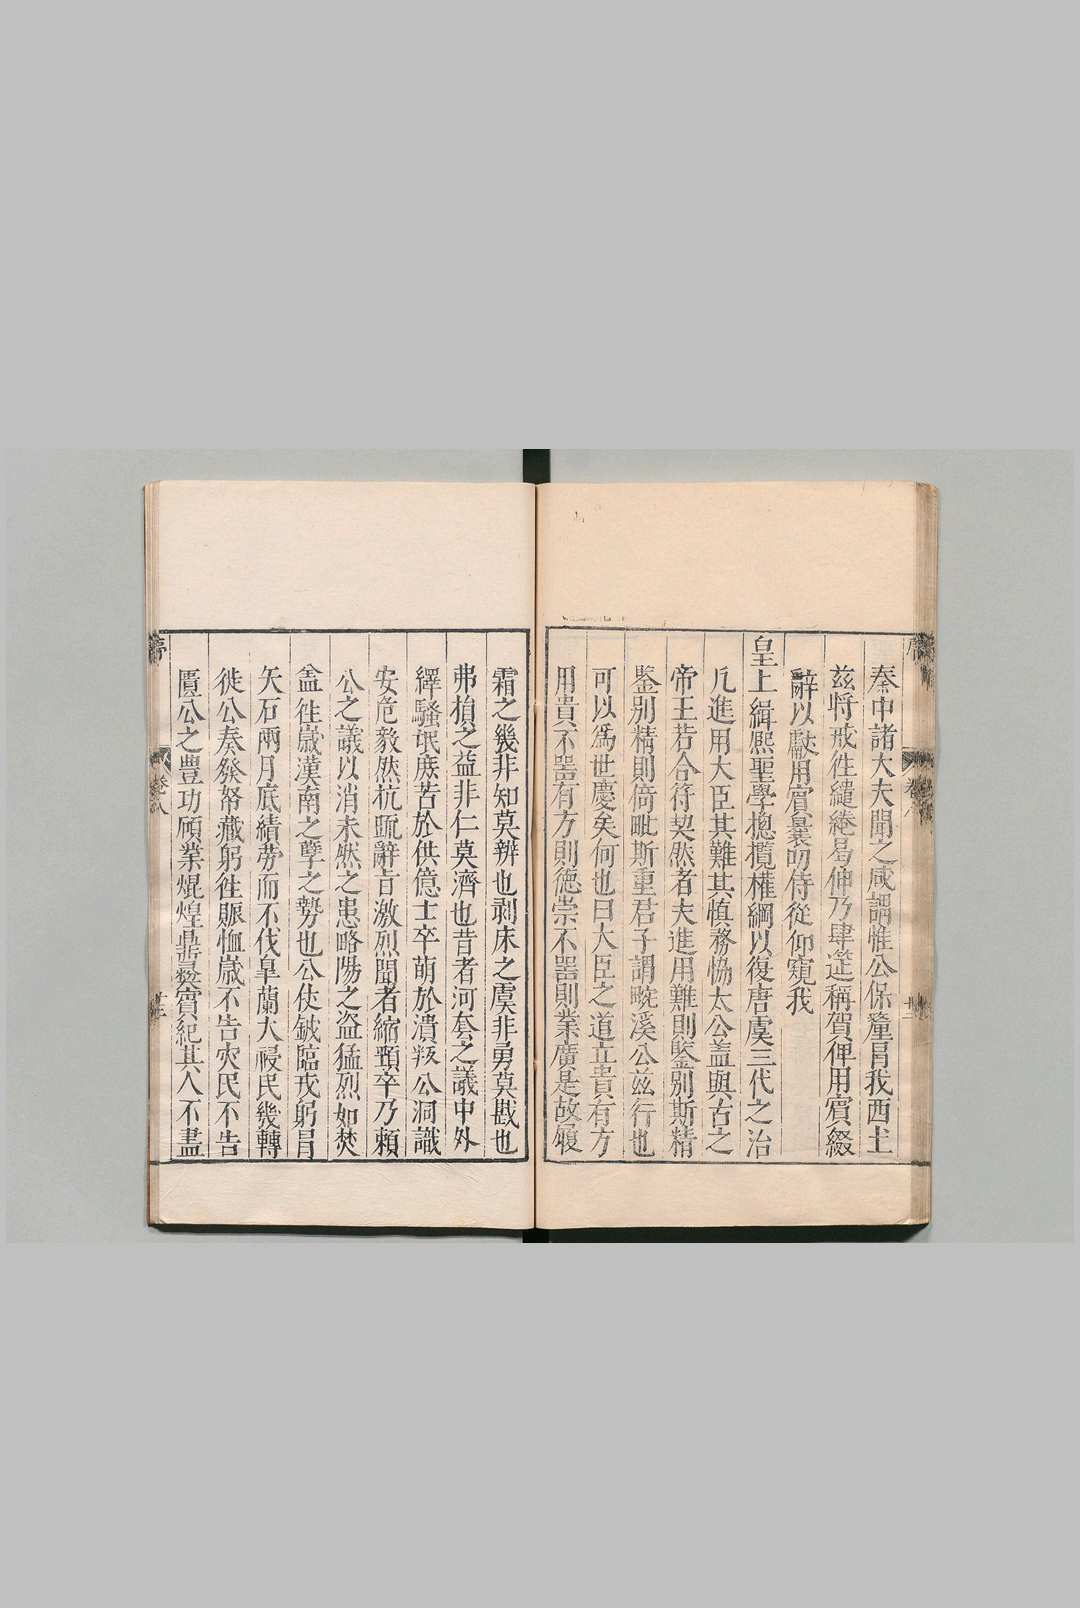 秦中諸大夫聞之咸謂惟公保釐昌我西土
茲將戒徃繾綣曷伸乃肆筵稱賀俾用賓綴
辭以獻用賓曩叨侍從仰窺我
皇上緝熈聖學揔攬權綱以復唐虞三代之治
凢進用大臣其難其慎務恊太公盖與古之
帝王若合符契然者夫進用難則鑒别斯精
鑒别精則倚毗斯重君子謂畹溪公兹行也
可以爲世慶矣何也曰大臣之道立貴有方
用貴不噐有方則徳崇不噐則業廣是故履
霜之幾非知莫辨也剥床之虞非勇莫戡也
弗損之益非仁莫濟也昔者河套之議中外
繹騷氓庻苦於供億士卒萌於潰叛公洞識
安危毅然抗疏辭旨激烈聞者縮頸卒乃頼
公之議以消未然之患略陽之盗猛烈如焚
盖徃嵗漢南之孽之勢也公伏鉞臨戎躬冒
矢石兩月底績劳而不伐臯蘭大祲民幾轉
徙公奏發帑藏躬徃賑恤嵗不告灾民不告
匱公之豊功頎業焜煌鼎彛賓紀其入不盡
序
卷八
十三